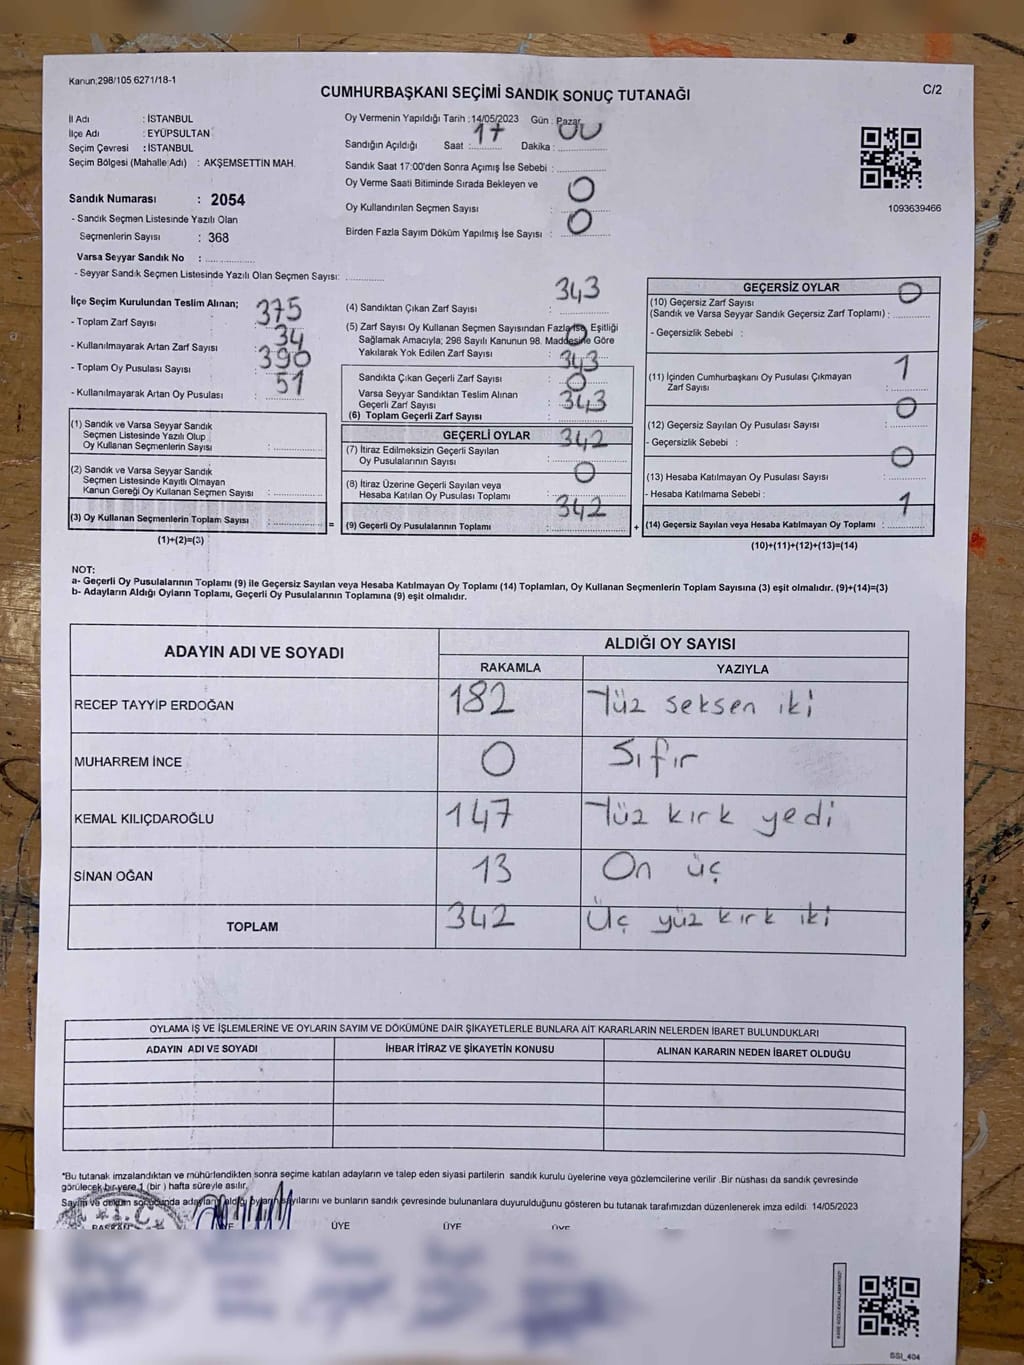 Kanun;298/105 6271/18-1
CUMHURBAŞKANI SEÇİMİ SANDIK SONUÇ TUTANAĞI
C/2
İl Adı : İSTANBUL
İlçe Adı : EYÜPSULTAN
Seçim Çevresi : İSTANBUL
Seçim Bölgesi (Mahalle Adı) : AKŞEMSETTİN MAH.
Sandık Numarası : 2054
- Sandık Seçmen Listesinde Yazılı Olan
Seçmenlerin Sayısı : 368
Varsa Seyyar Sandık No :
- Seyyar Sandık Seçmen Listesinde Yazılı Olan Seçmen Sayısı:
Oy Vermenin Yapıldığı Tarih :14/05/2023 Gün : Pazar
Sandığın Açıldığı Saat : 17 Dakika : 00
Sandık Saat 17:00'den Sonra Açımış İse Sebebi :
Oy Verme Saati Bitiminde Sırada Bekleyen ve
Oy Kullandırılan Seçmen Sayısı : 0
Birden Fazla Sayım Döküm Yapılmış İse Sayısı : 0
1093639466
İlçe Seçim Kurulundan Teslim Alınan;
- Toplam Zarf Sayısı : 375
- Kullanılmayarak Artan Zarf Sayısı : 34
- Toplam Oy Pusulası Sayısı : 390
- Kullanılmayarak Artan Oy Pusulası : 51
(1) Sandık ve Varsa Seyyar Sandık
Seçmen Listesinde Yazılı Olup
Oy Kullanan Seçmenlerin Sayısı :
(2) Sandık ve Varsa Seyyar Sandık
Seçmen Listesinde Kayıtlı Olmayan
Kanun Gereği Oy Kullanan Seçmen Sayısı :
(3) Oy Kullanan Seçmenlerin Toplam Sayısı : =
(1)+(2)=(3)
(4) Sandıktan Çıkan Zarf Sayısı : 343
(5) Zarf Sayısı Oy Kullanan Seçmen Sayısından Fazla İse, Eşitliği
Sağlamak Amacıyla; 298 Sayılı Kanunun 98. Maddesine Göre
Yakılarak Yok Edilen Zarf Sayısı : 0
Sandıkta Çıkan Geçerli Zarf Sayısı : 343
Varsa Seyyar Sandıktan Teslim Alınan
Geçerli Zarf Sayısı : 0
(6) Toplam Geçerli Zarf Sayısı : 343
GEÇERLİ OYLAR
(7) İtiraz Edilmeksizin Geçerli Sayılan
Oy Pusulalarının Sayısı : 342
(8) İtiraz Üzerine Geçerli Sayılan veya
Hesaba Katılan Oy Pusulası Toplamı : 0
(9) Geçerli Oy Pusulalarının Toplamı : 342 +
GEÇERSİZ OYLAR
(10) Geçersiz Zarf Sayısı
(Sandık ve Varsa Seyyar Sandık Geçersiz Zarf Toplamı) : 0
- Geçersizlik Sebebi :
(11) İçinden Cumhurbaşkanı Oy Pusulası Çıkmayan
Zarf Sayısı : 1
(12) Geçersiz Sayılan Oy Pusulası Sayısı : 0
- Geçersizlik Sebebi :
(13) Hesaba Katılmayan Oy Pusulası Sayısı : 0
- Hesaba Katılmama Sebebi :
(14) Geçersiz Sayılan veya Hesaba Katılmayan Oy Toplamı : 1
(10)+(11)+(12)+(13)=(14)
NOT:
a- Geçerli Oy Pusulalarının Toplamı (9) ile Geçersiz Sayılan veya Hesaba Katılmayan Oy Toplamı (14) Toplamları, Oy Kullanan Seçmenlerin Toplam Sayısına (3) eşit olmalıdır. (9)+(14)=(3)
b- Adayların Aldığı Oyların Toplamı, Geçerli Oy Pusulalarının Toplamına (9) eşit olmalıdır.
ADAYIN ADI VE SOYADI ALDIĞI OY SAYISI
RAKAMLA YAZIYLA
RECEP TAYYİP ERDOĞAN 182 Yüz seksen iki
MUHARREM İNCE 0 Sıfır
KEMAL KILIÇDAROĞLU 147 Yüz kırk yedi
SİNAN OĞAN 13 On üç
TOPLAM 342 Üç yüz kırk iki
OYLAMA İŞ VE İŞLEMLERİNE VE OYLARIN SAYIM VE DÖKÜMÜNE DAİR ŞİKAYETLERLE BUNLARA AİT KARARLARIN NELERDEN İBARET BULUNDUKLARI
ADAYIN ADI VE SOYADI İHBAR İTİRAZ VE ŞİKAYETİN KONUSU ALINAN KARARIN NEDEN İBARET OLDUĞU
*Bu tutanak imzalandıktan ve mühürlendikten sonra seçime katılan adayların ve talep eden siyasi partilerin sandık kurulu üyelerine veya gözlemcilerine verilir .Bir nüshası da sandık çevresinde
görülecek bir yere 1 (bir ) hafta süreyle asılır.
Sayım ve döküm sonucunda adayların aldığı oyların sayılarını ve bunların sandık çevresinde bulunanlara duyurulduğunu gösteren bu tutanak tarafımızdan düzenlenerek imza edildi. 14/05/2023
T.C.
BAŞKAN ÜYE ÜYE ÜYE
SSI_404